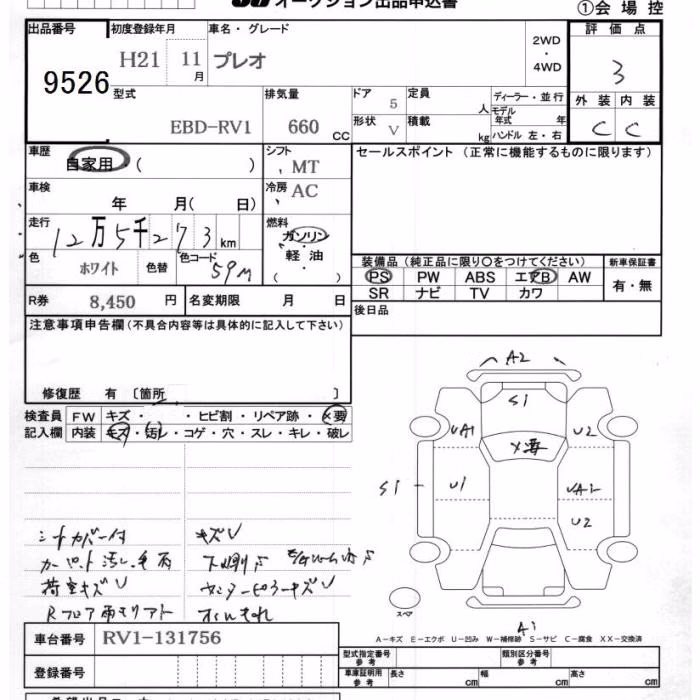 オークション出品申込書
①会場控
出品番号 初度登録年月 車名・グレード 評価点
9526 H21 11月 プレオ 2WD・4WD 3
型式 排気量 ドア 定員 ディーラー・並行 外装 内装
EBD-RV1 660 CC 5 人 モデル年式 年 C C
形状 V 積載 kg ハンドル 左・右
車歴 自家用 ( ) シフト MT セールスポイント (正常に機能するものに限ります)
車検 年 月( 日) 冷房 AC
走行 12万5千273km 燃料 ガソリン・軽油 ( )
色 ホワイト 色替 色コード 59M
装備品 (純正品に限り〇をつけてください) 新車保証書
PS PW ABS エアB AW 有・無
SR ナビ TV カワ
R券 8,450 円 名変期限 月 日 後日品
注意事項申告欄(不具合内容等は具体的に記入して下さい)
修復歴 有 〔箇所 〕
検査員 FW キズ・ ・ヒビ割・リペア跡・×要
記入欄 内装 キズ・汚レ・コゲ・穴・スレ・キレ・破レ
A2
S1
UA1 U2
×要
S1 U1 UA1
U2
スペア
A1
シートカバー付 キズU
荷室キズU
A−キズ E−エクボ U−凹み W−補修跡 S−サビ C−腐食 XX−交換済
車台番号 RV1-131756
型式指定番号 参考 類別区分番号 参考
登録番号 車庫証明用 参考 長さ cm 幅 cm 高さ cm